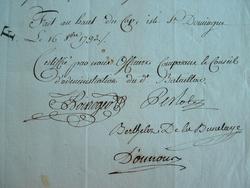 Fait au haut du Cap, isle St Domingue
Le 16 8bre 1792
Certifié par nous officiers Composant le Conseil
d'administration du dt Bataillon
Berthelin De la Bunelaye
D'onnour